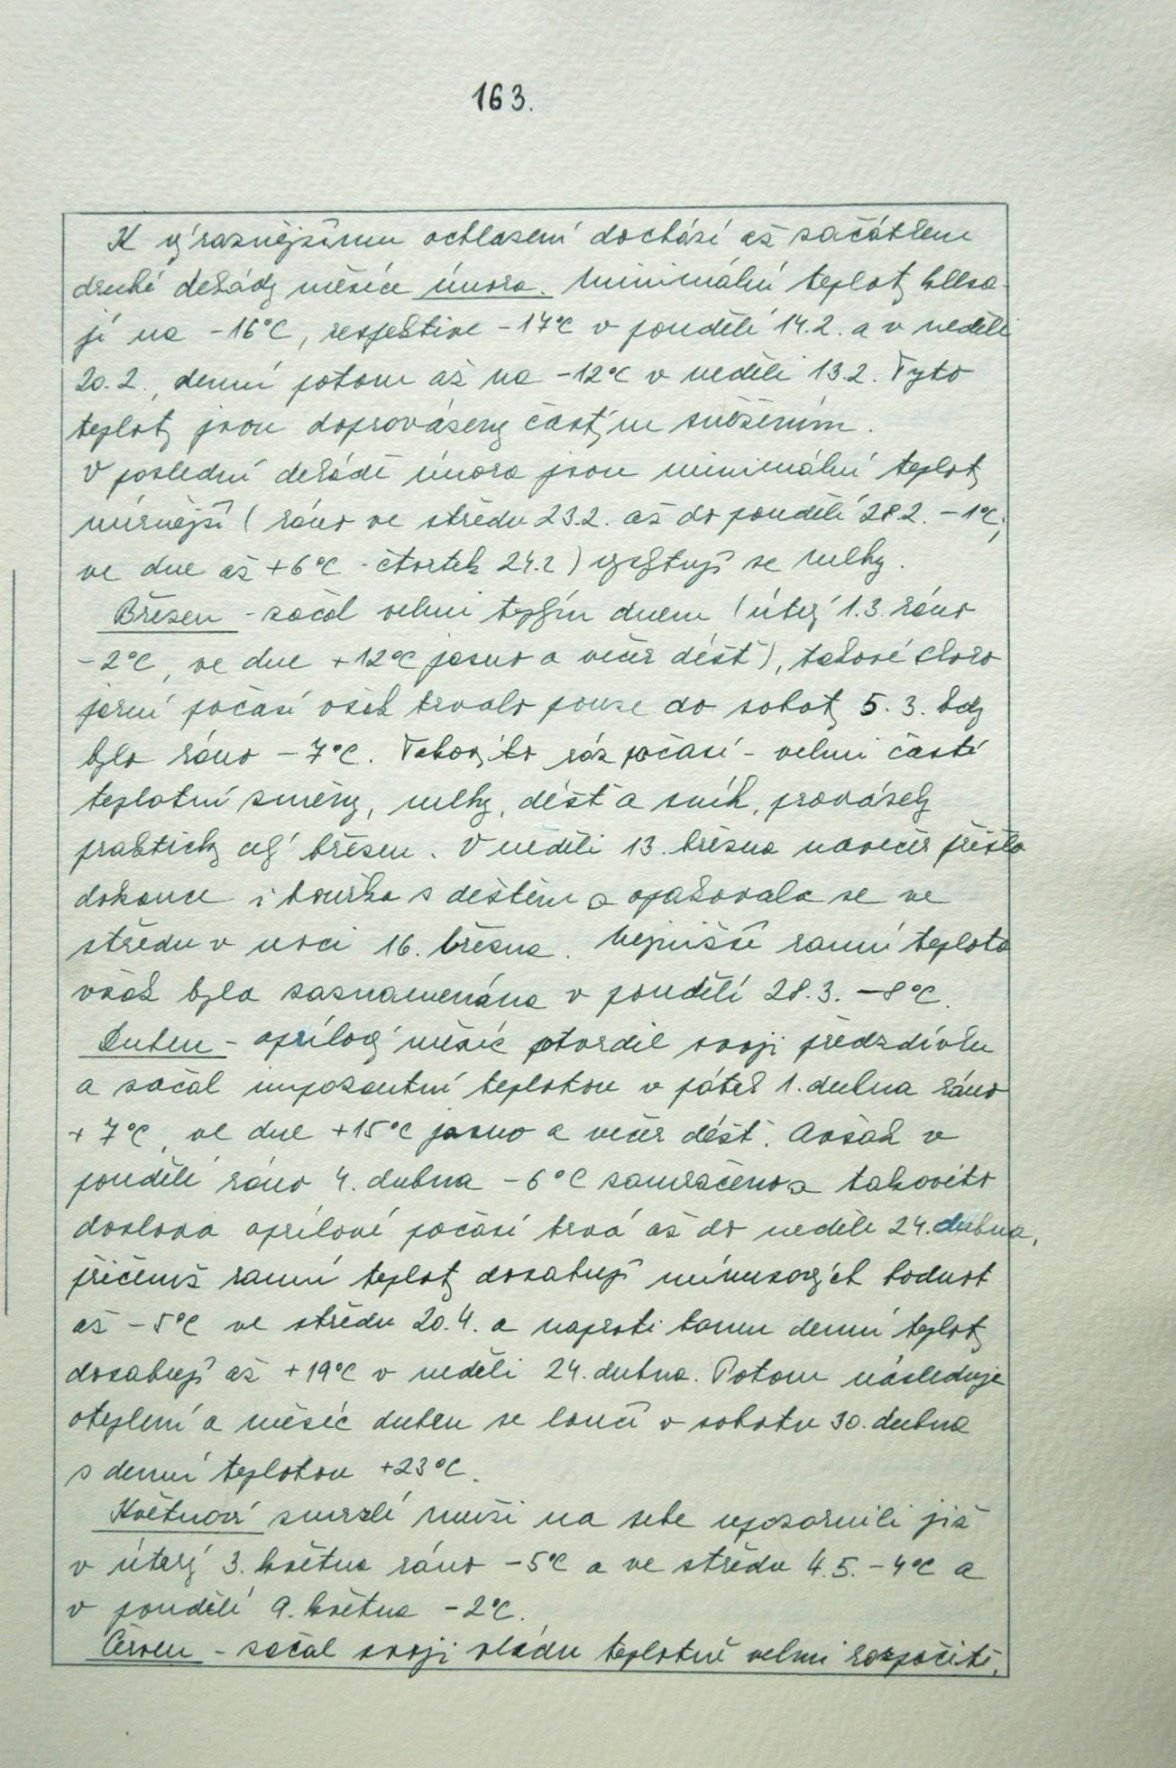 163.
K výraznějšímu ochlazení dochází až začátkem
druhé dekády měsíce února. Minimální teploty klesa-
jí na -16°C, respektive -17°C v pondělí 14.2. a v neděli
20.2., denní potom až na -12°C v neděli 13.2. Tyto
teploty jsou doprovázeny častým sněžením.
V poslední dekádě února jsou minimální teploty
mírnější (ráno ve středu 23.2. až do pondělí 28.2. -1°C,
ve dne až +6°C - čtvrtek 24.2) vyskytují se mlhy.
Březen - začal velmi teplým dnem (úterý 1.3. ráno
-2°C, ve dne +12°C jasno a večer déšť), takové skoro
jarní počasí však trvalo pouze do soboty 5. 3. kdy
bylo ráno -7°C. Takovýto ráz počasí - velmi časté
teplotní změny, mlhy, déšť a sníh, provázely
prakticky celý březen. V neděli 13. března navečer přišla
dokonce i bouřka s deštěm a opakovala se ve
středu v noci 16. března. Nejnižší ranní teplota
však byla zaznamenána v pondělí 28.3. -8°C.
Duben - aprílový měsíc potvrdil svoji předzdívku
a začal imposantní teplotou v pátek 1. dubna ráno
+7°C, ve dne +15°C jasno a večer déšť. Avšak v
pondělí ráno 4. dubna -6°C zamračeno a takovéto
doslova aprílové počasí trvá až do neděle 24. dubna,
přičemž ranní teploty dosahují mínusových hodnot
až -5°C ve středu 20.4. a naproti tomu denní teploty
dosahují až +19°C v neděli 24. dubna. Potom následuje
oteplení a měsíc duben se loučí v sobotu 30. dubna
s denní teplotou +23°C.
Květnoví zmrzlí muži na sebe upozornili již
v úterý 3. května ráno -5°C a ve středu 4.5. -4°C a
v pondělí 9. května -2°C.
Červen - začal svoji vládu teplotně velmi rozpačitě,